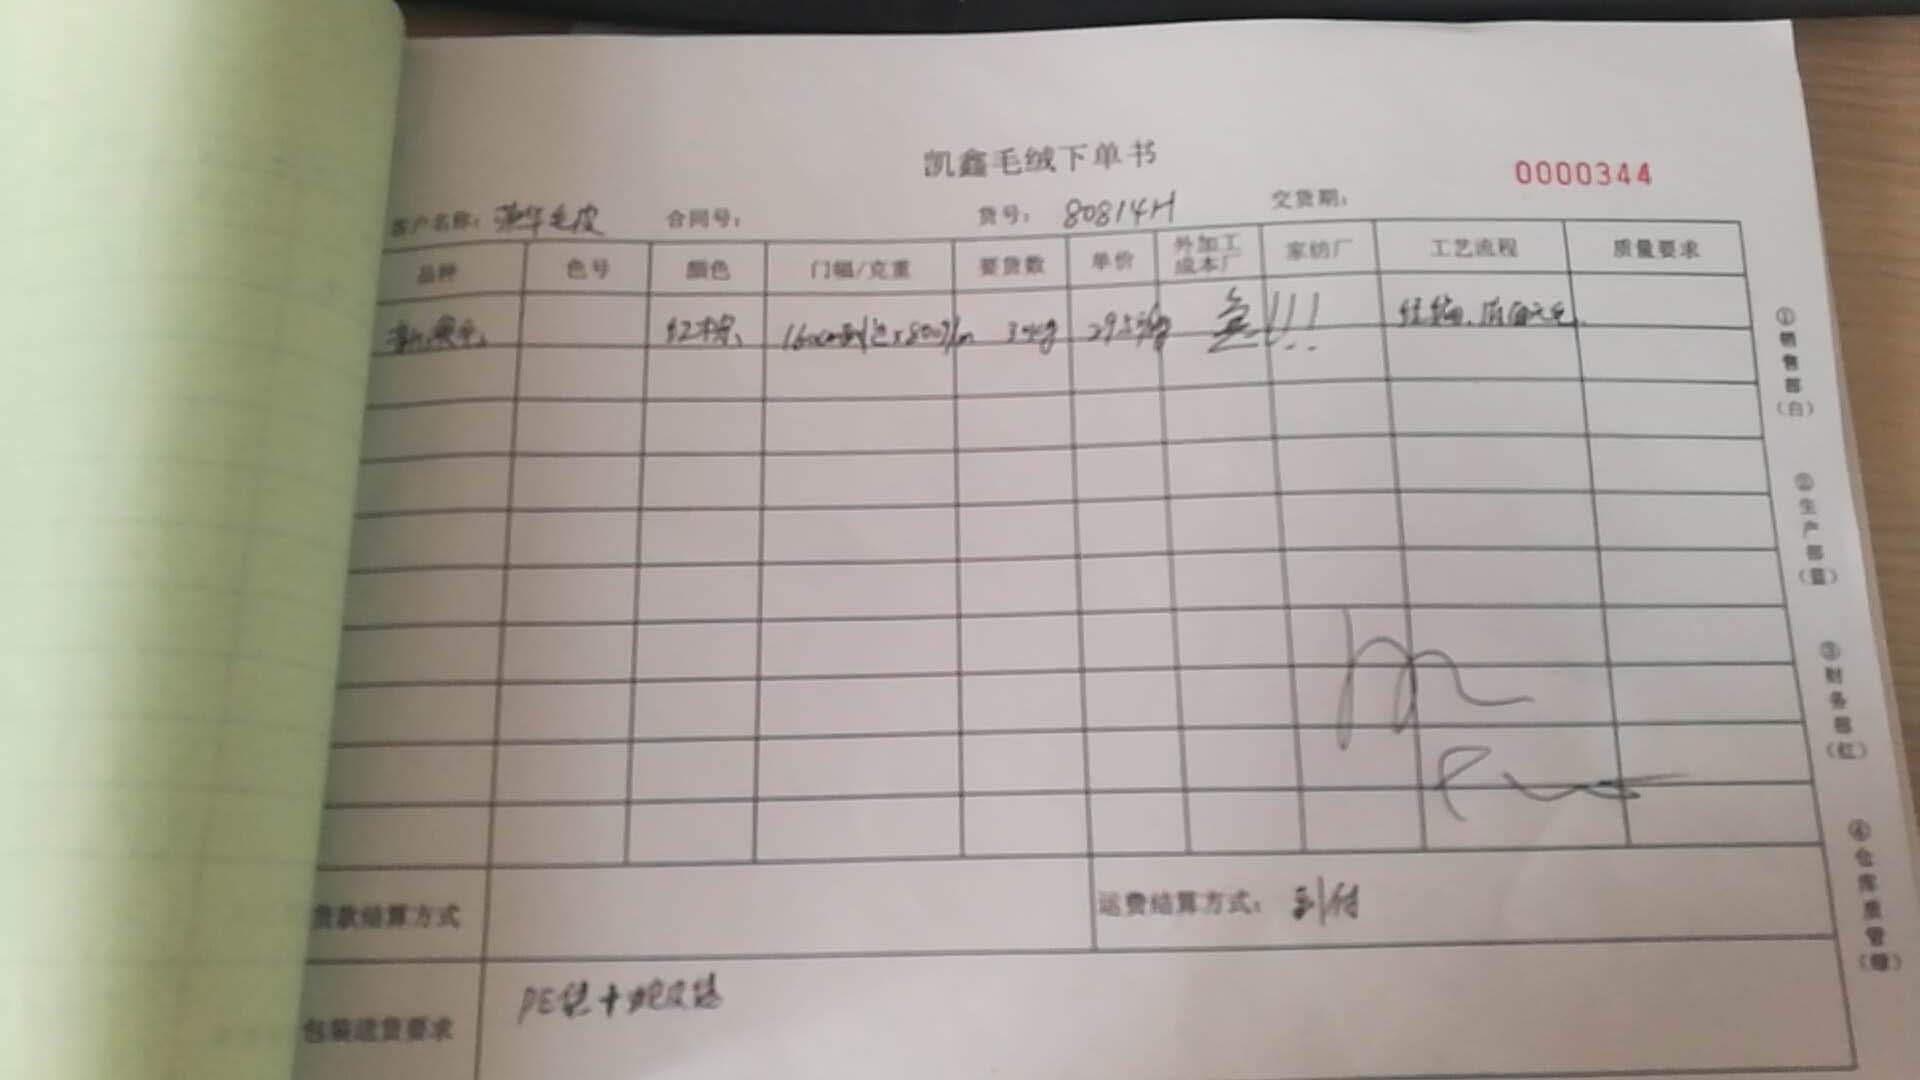 凯鑫毛绒下单书
0000344
客户名称: 华毛皮 合同号: 货号: 80814H 交货期:
品种 色号 颜色 门幅/克重 要货数 单价 外加工成本厂 家纺厂 工艺流程 质量要求
红棕 急!!!
货款结算方式 运费结算方式: 到付
包装送货要求 PE袋+蛇皮袋
①销售部(白)
②生产部(蓝)
③财务部(红)
④仓库质管(绿)